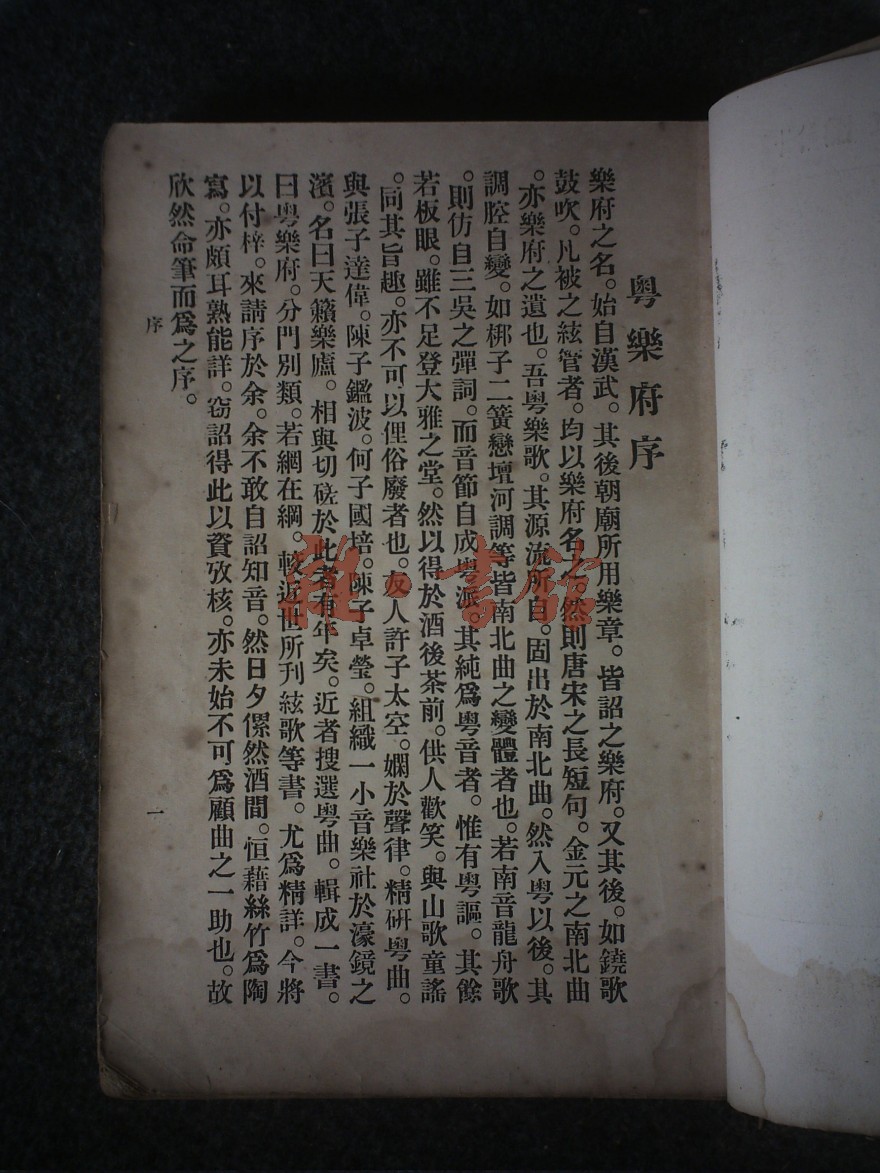 粵樂府序
樂府之名。始自漢武。其後朝廟所用樂章。皆詔之樂府。又其後。如鐃歌
鼓吹。凡被之絃管者。均以樂府名之。然則唐宋之長短句。金元之南北曲
。亦樂府之遺也。吾粵樂歌。其源流所自。固出於南北曲。然入粵以後。其
調腔自變。如梆子二簧戀壇河調等皆南北曲之變體者也。若南音龍舟歌
。則仿自三吳之彈詞。而音節自成粵派。其純爲粵音者。惟有粵謳。其餘
若板眼。雖不足登大雅之堂。然以得於酒後茶前。供人歡笑。與山歌童謠
。同其旨趣。亦不可以俚俗廢者也。友人許子太空。嫻於聲律。精研粵曲。
與張子達偉。陳子鑑波。何子國培。陳子卓瑩。組織一小音樂社於濠鏡之
濱。名曰天籟樂廬。相與切磋於此者有年矣。近者搜選粵曲。輯成一書。
曰粵樂府。分門別類。若網在綱。較近世所刊絃歌等書。尤爲精詳。今將
以付梓。來請序於余。余不敢自詔知音。然日夕傫然酒間。恒藉絲竹爲陶
寫。亦頗耳熟能詳。窃詔得此以資攷核。亦未始不可爲顧曲之一助也。故
欣然命筆而爲之序。
序
一
雜·書館